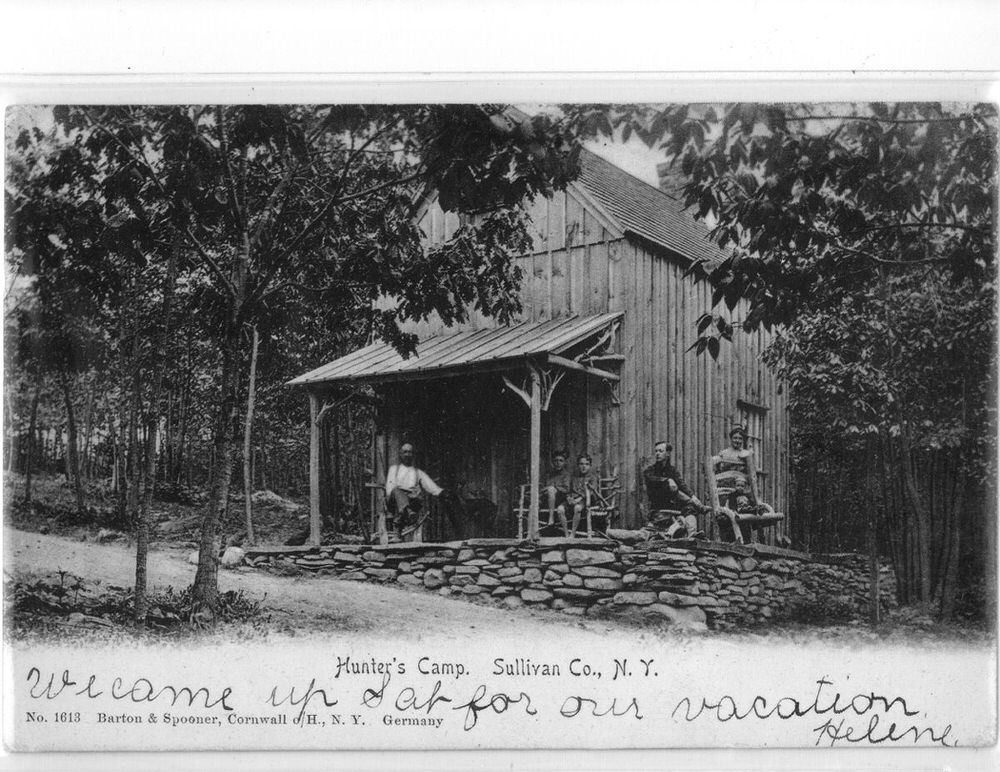 Hunter's Camp. Sullivan Co., N. Y.
We came up Sat for our vacation.
No. 1613 Barton & Spooner, Cornwall o/H., N. Y. Germany
Helene.